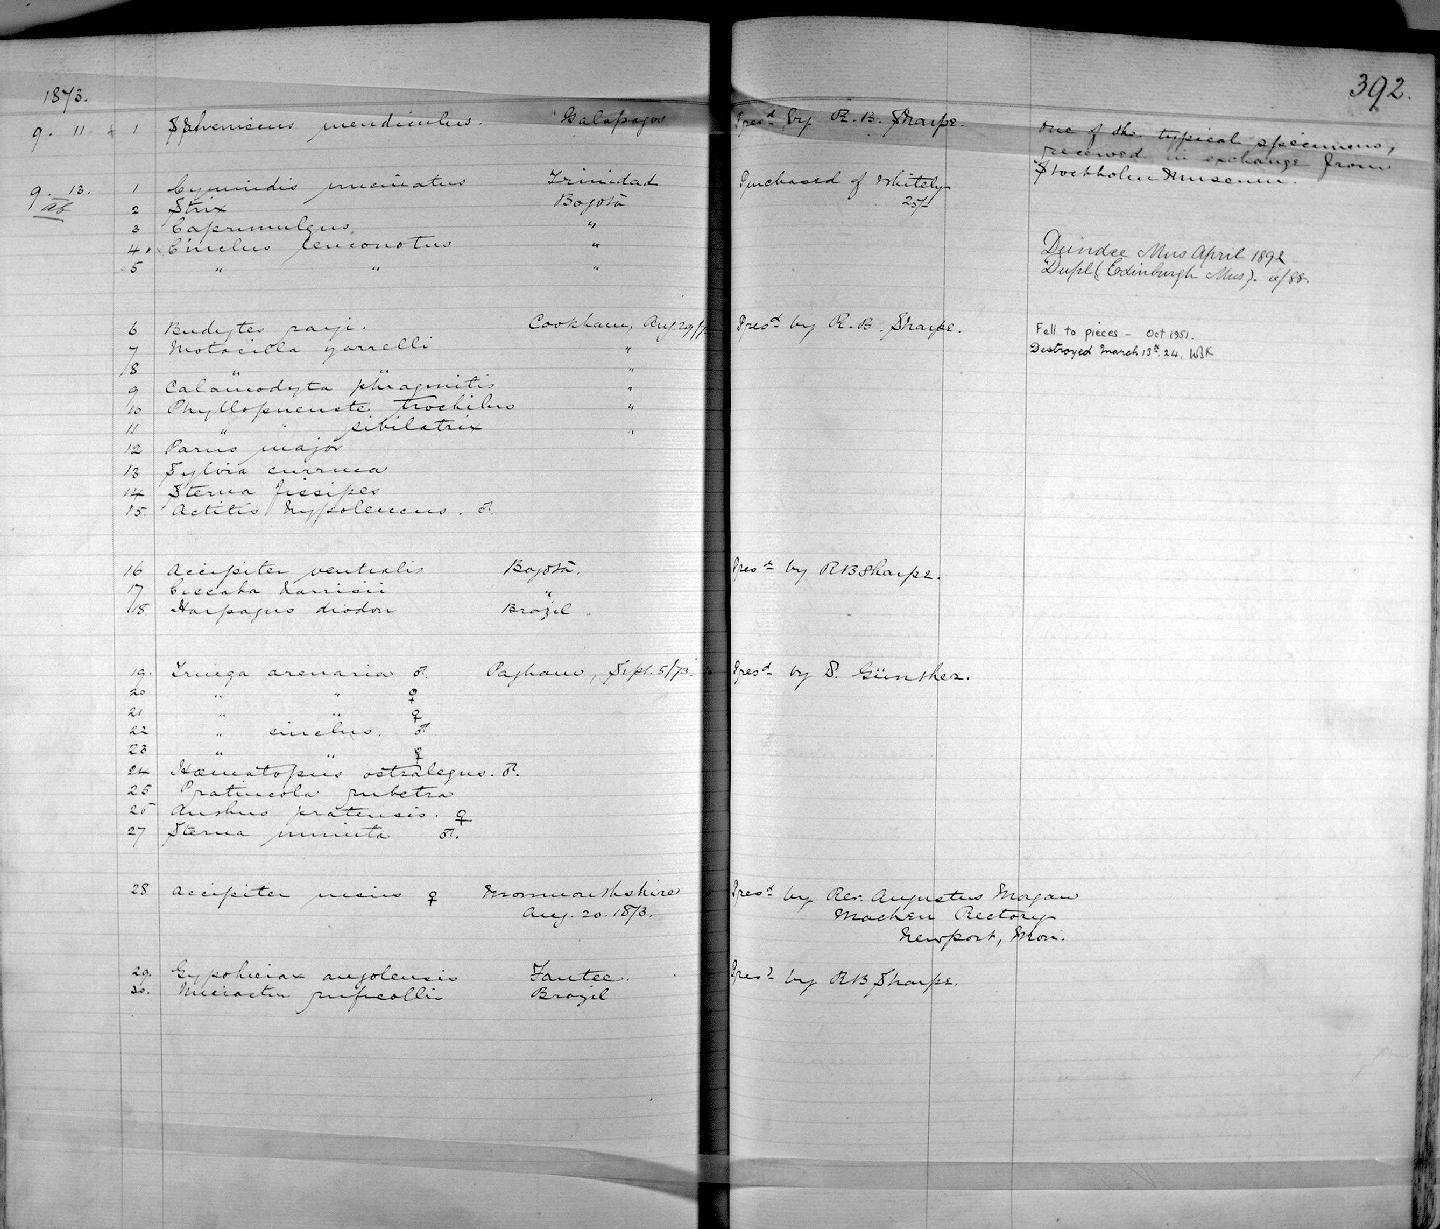 392.
1873.
9. 11 1 Spheniscus mendiculus. Galapagos Presd by R. B. Sharpe. One of the typical specimens,
received in exchange from
Stockholm Museum.
9. 13. 1 Cymindis uncinatus Trinidad Purchased of Whitely
2 Strix Bogotà 25/-
3 Caprimulgus "
4 Cinclus leuconotus " Dundee Mus April 1892
5 " " " Dupl (Edinburgh Mus). 2/88.
6 Budytes rayi. Cookham, Aug 29/73 Presd by R. B. Sharpe. Fell to pieces - Oct 1951.
7 Motacilla yarrelli " Destroyed March 13th 24. WBK
8 " " "
9 Calamodyta phragmitis "
10 Phyllopneuste trochilus "
11 " " sibilatrix "
12 Parus major
13 Sylvia curruca
14 Sterna fissipes
15. Actitis hypoleucus. ♂
16 Accipiter ventralis Bogotà. Presd by R B Sharpe.
17 Ciccaba harrisii "
18 Harpagus diodon Brazil.
19. Tringa arenaria ♂. Pagham, Sept. 5/73. Presd by D. Günther.
20 " " ♀
21 " " ♀
22 " cinclus. ♂.
23 " " ♀
24 Hæmatopus ostralegus. ♂.
25 Pratincola rubetra
26 Anthus pratensis. ♀
27 Sterna minuta ♂.
28 Accipiter nisus ♀ Monmouthshire Presd by Rev. Augustus Morgan
Aug. 20. 1873. Machen Rectory
Newport, Mon.
29. Gypohierax angolensis Fantee. Presd by R B Sharpe.
30. Micrastur ruficollis Brazil